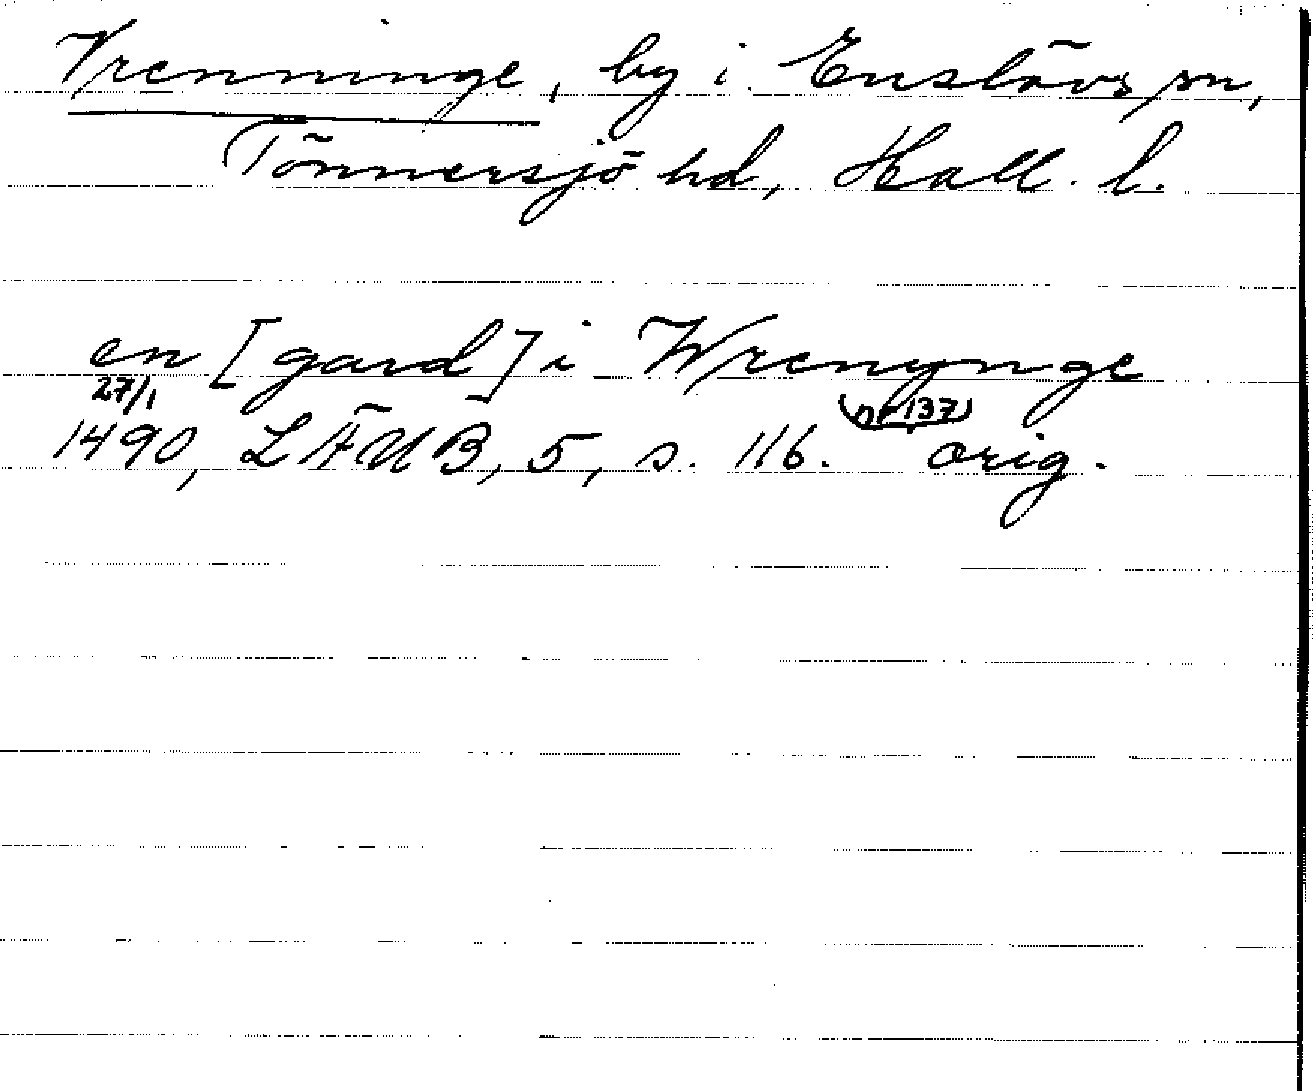 Vrenninge, by i Enslövs sn,
Tönnersjö hd, Hall. l.
en [gard] i Wrenynge
27/1 (nr 137)
1490, LÄUB, 5, s. 116. orig.